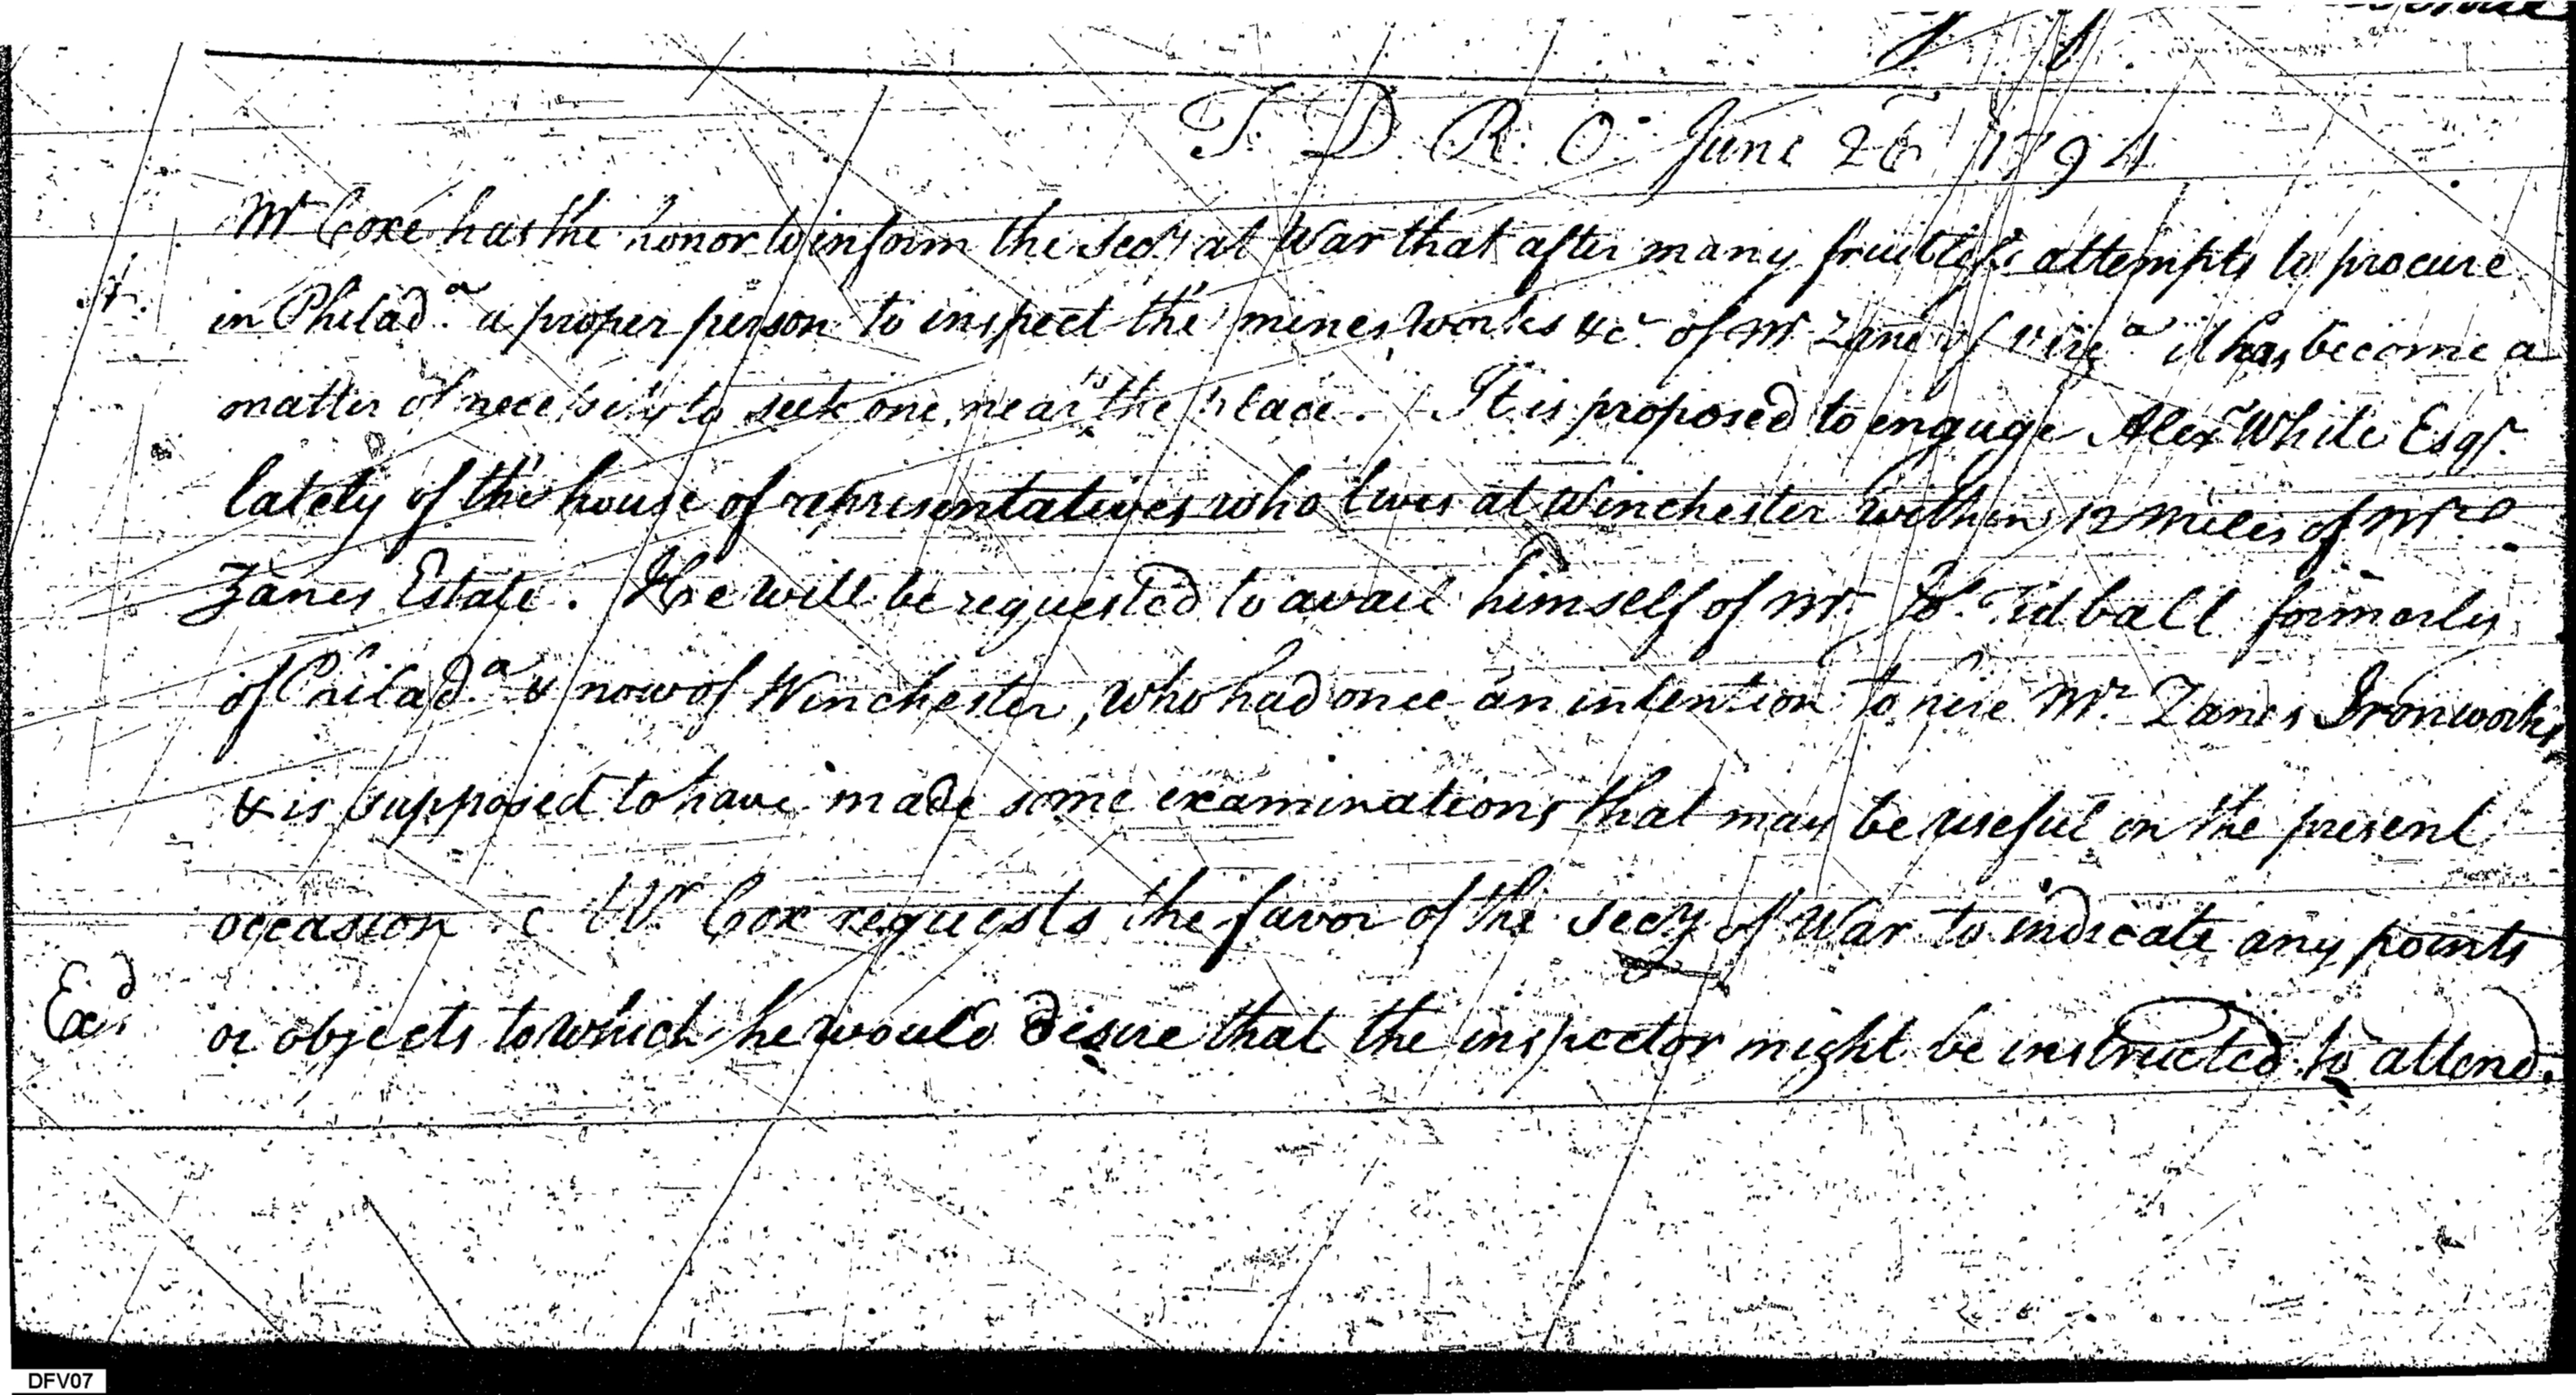 T. D. R. O. June 26 1794
Mr Coxe has the honor to inform the Secy at War that after many fruitless attempts to procure
in Philada. a proper person to inspect the mines, works &c. of Mr Zane of Virga it has become a
matter of necessity to seek one near to the place. It is proposed to engage Alexr White Esqr.
lately of the house of representatives who lives at Winchester within 12 miles of Mr
Zanes Estate. He will be requested to avail himself of Mr Tidball formerly
of Philada & now of Winchester, who had once an intention to hire Mr Zanes Ironworks
& is supposed to have made some examinations that may be useful on the present
occasion. Mr Cox requests the favor of the Secy of War to indicate any points
Exd or objects to which he would desire that the inspector might be instructed to attend.
DFV07